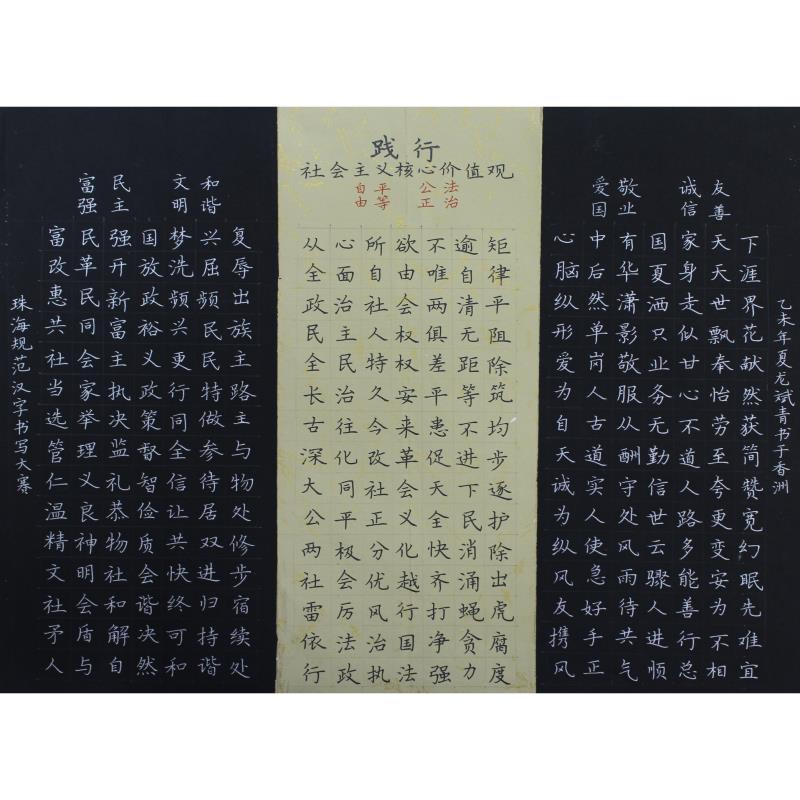 践行
社会主义核心价值观
富强 民主 文明 和谐
富民强国梦兴复
改革开放洗屈辱
惠民新政频频出
共同富裕兴民族
社会主义更民主
当家执政行特路
选举决策同做主
管理监督全参与
仁义礼智信待物
温良恭俭让居处
精神物质共双修
文明社会快进步
社会和谐终归宿
矛盾解决可持续
人与自然和谐处
自由 平等 公正 法治
从心所欲不逾矩
全面自由唯自律
政治社会两清平
民主人权俱无阻
全民特权差距除
长治久安平等筑
古往今来患不均
深化改革促进步
大同社会天下逐
公平正义全民护
两极分化快消除
社会优越齐涌出
雷厉风行打蝇虎
依法治国净贪腐
行政执法强力度
爱国 敬业 诚信 友善
心中有国家天下
脑后华夏身天涯
纵然潇洒走世界
形单影只似飘花
爱岗敬业甘奉献
为人服务心怡然
自古从无不劳获
天道酬勤道至简
诚实守信人夸赞
为人处世路更宽
纵使风云多变幻
风急雨骤能安眠
友好待人善为先
携手共进行不难
风正气顺总相宜
珠海规范汉字书写大赛
乙未年夏龙斌青书于香洲